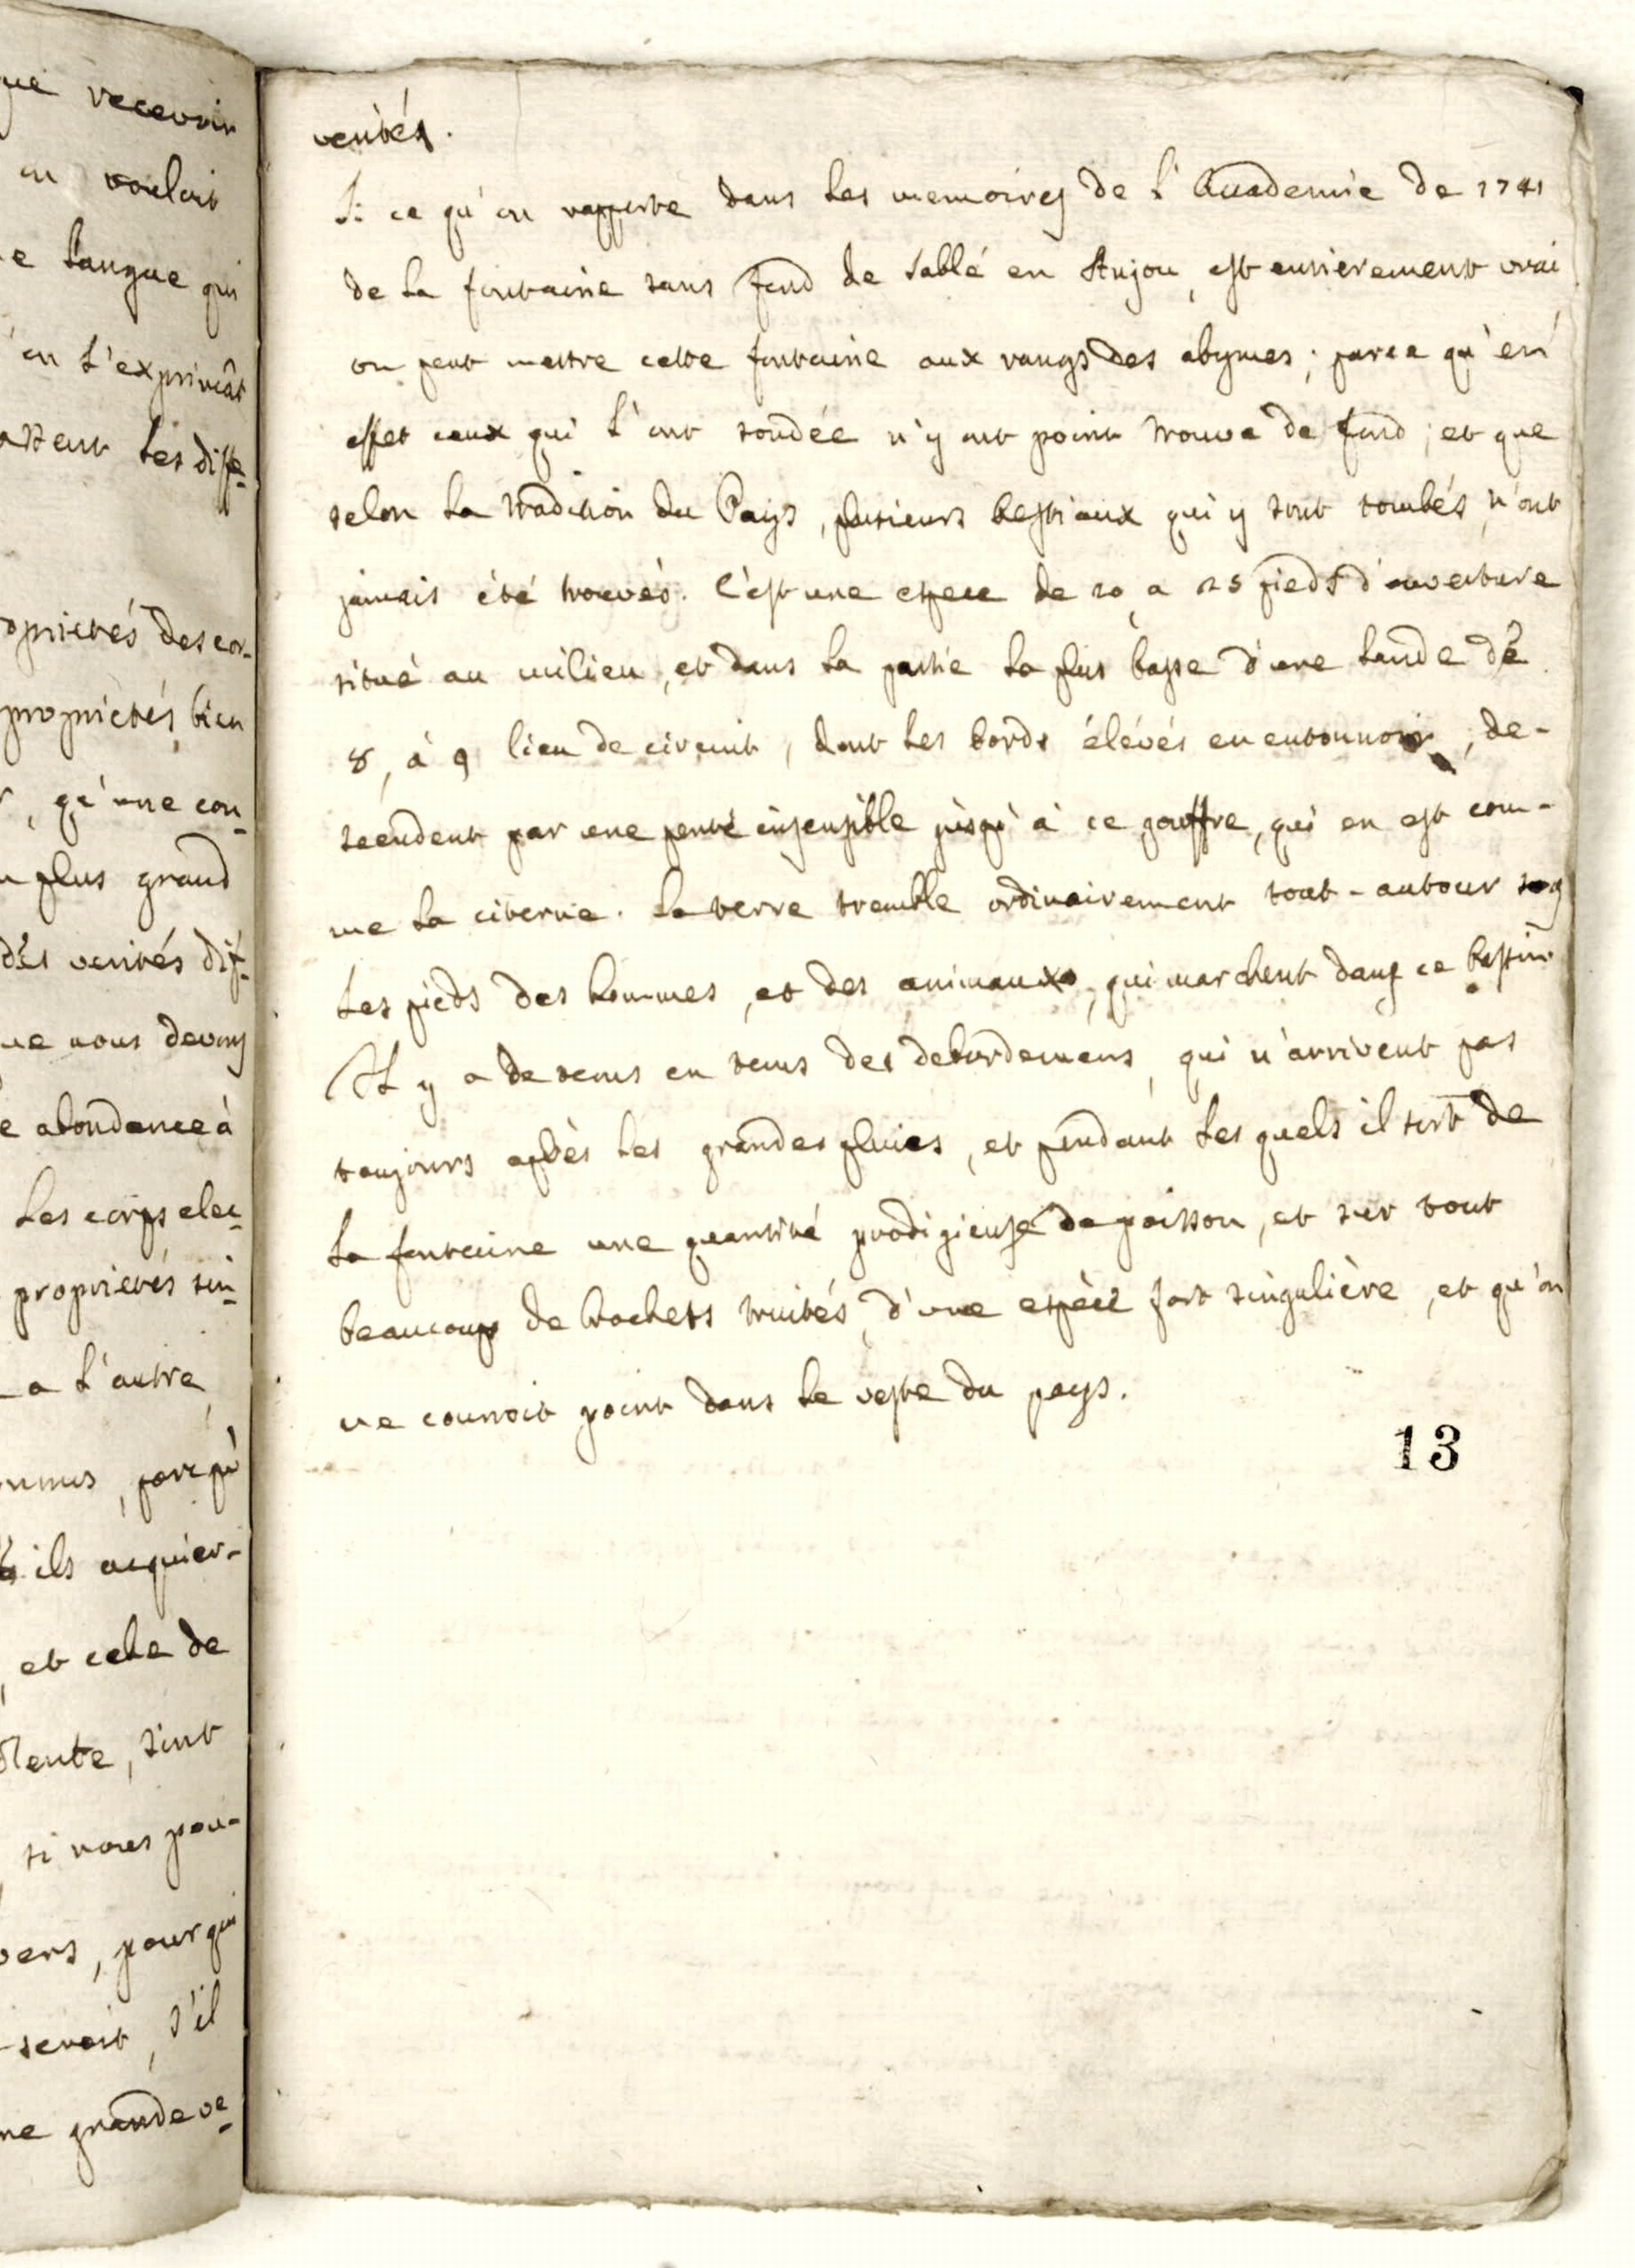 que recevoir
on vouloit
e langue qui
'on l'exprimât
les diffe-
proprietés des cor-
proprietés, bien
, qu'une con-
plus grand
des verités dif-
ue nous devons
e abondance à
les corps elec-
proprietés sin-
a l'autre
, parcequ'
ils acquier-
, et cele de
, sont
si nous pou-
vers, pour qui
seroit, s'il
ne grande ve-
verités.
Si ce qu'on rapporte dans les memoires de l'Academie de 1741
de la fontaine sans fond de sablé en Anjou, est entierement vrai
on peut mettre cette fontaine aux rangs des abymes; parce qu'en
effet ceux qui l'ont sondée n'y ont point trouvé de fond; et que
selon la tradition du Pays, plusieurs bestiaux qui y sont tombés, n'ont
jamais été trouvés. C'est une espece de 20, a 25 pieds d'ouverture
situé au milieu, et dans la partie la plus basse d'une lande de
8, à 9 lieu de circuit, dont les bords élévés en entonnoir, de-
scendent par une pente insensible jusqu'à ce gouffre, qui en est com-
me la citerne. La terre tremble ordinairement tout-autour sous
les pieds des hommes, et des animaux, qui marchent dans ce bassin
Il y a de tems en tems des debordemens, qui n'arrivent pas
toujours après les grandes pluies, et pendant les quels il sort de
la fontaine une quantité prodigieuse de poisson, et sur tout
beaucoup de brochets truités, d'une espèce fort singulière, et qu'on
ne connoit point dans le reste du pays.
13